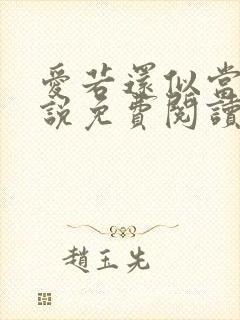 愛若還似當
說免費閱讀
趙玉先